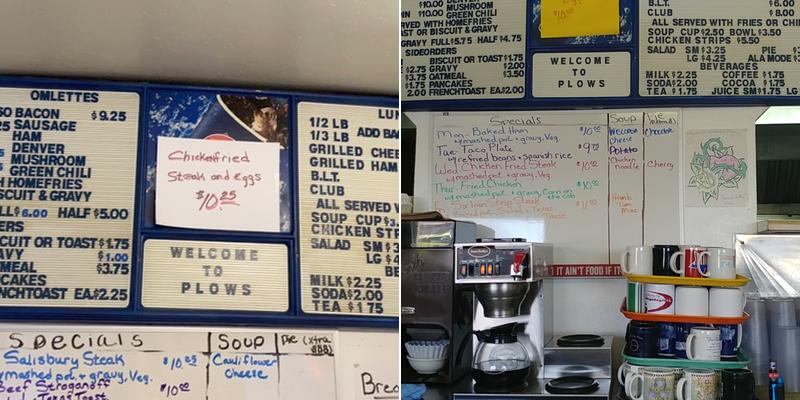 OMLETTES
50 BACON $9.25
25 SAUSAGE
HAM
25 DENVER
MUSHROOM
GREEN CHILI
HOMEFRIES
BISCUIT & GRAVY
$6.00 HALF $5.00
CUIT OR TOAST $1.75
$1.00
MEAL $3.75
CAKES
NCHTOAST EA.$2.25
Chickenfried
Steak and Eggs
$10.25
WELCOME
TO
PLOWS
LUN
1/2 LB
1/3 LB ADD BA
GRILLED CHEE
GRILLED HAM
B.L.T.
CLUB
ALL SERVED
SOUP CUP $3.
CHICKEN STR
SALAD SM $3
LG $4
BE
MILK $2.25
SODA $2.00
TEA $1.75
Specials
Salisbury Steak $10.25
w/mashed pot. + gravy, Veg.
Beef Stroganoff $10.00
Texas Toast
Soup
Cauliflower
Cheese
Pie (xtra
$$$)
Brea
$10.00 DENVER
$10.00 MUSHROOM
GREEN CHILI
RVED WITH HOMEFRIES
AST OR BISCUIT & GRAVY
GRAVY FULL $5.75 HALF $4.75
SIDEORDERS
BISCUIT OR TOAST $1.75
$2.75 GRAVY $2.00
$3.75 OATMEAL $3.50
$1.75 PANCAKES
$2.00 FRENCHTOAST EA $2.00
WELCOME
TO
PLOWS
B.L.T. $6.00
CLUB $8.00
ALL SERVED WITH FRIES OR CHI
SOUP CUP $2.50 BOWL $3.50
CHICKEN STRIPS $5.50
SALAD SM $3.25 PIE $
LG $4.25 ALA MODE $
BEVERAGES
MILK $2.25 COFFEE $1.75
SODA $2.00 COCOA $1.75
TEA $1.75 JUICE SM $1.75 LG
Specials
Mon - Baked Ham $10.00
w/mashed pot + gravy, Veg.
Tue Taco Plate $9.75
w/refried beans + spanish rice
Wed Chicken Fried Steak $10.00
w/mashed pot + gravy, Veg.
Thur - Fried Chicken $10.00
w/mashed pot + gravy, Corn on
the cob
Soup
Cheese
Potato
Chicken
Noodle
Tom
Mac
Pie
Chocolate
Cherry
IT AIN'T FOOD IF IT